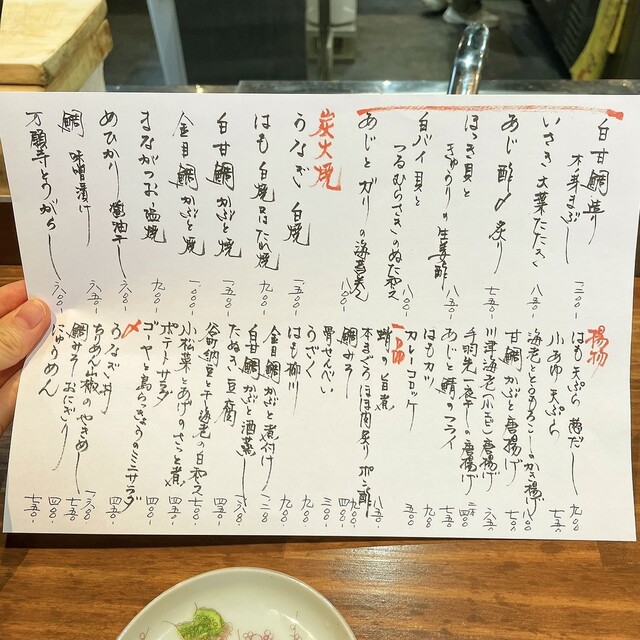 白甘鯛造り
木芽まぶし 一二〇〇-
いさき 大葉たたき 八五〇-
あじ 酢〆炙り 七五〇-
ほっき貝と
きゅうりの生姜酢 八五〇-
白バイ貝と
つるむらさきのぬた和え 八〇〇-
あじとガリの海苔巻 八〇〇-
炭火焼
うなぎ 白焼 一五〇〇-
はも 白焼 又はたれ焼
白甘鯛かぶと焼 一五〇〇-
金目鯛かぶと焼 一〇〇〇-
まながつお 塩焼 九〇〇-
めひかり 醤油干し 六五〇-
鯛 味噌漬け 六五〇-
万願寺とうがらし 六〇〇-
揚物
はも天ぷら 梅だし 九〇〇-
小あゆ天ぷら 七五〇-
海老ととうもろこしのかき揚げ 八〇〇-
甘鯛かぶと唐揚げ 七〇〇-
川津海老(小エビ)唐揚げ 六五〇-
手羽先一夜干しの唐揚げ
あじと鯖のフライ 七五〇-
はもカツ 九〇〇-
カレーコロッケ 五〇〇-
一品
蛸のやわらか煮 八五〇-
本まぐろほほ肉炙り ポン酢 九〇〇-
鯛みそ 四〇〇-
骨せんべい 三〇〇-
うざく 九〇〇-
はも柳川 九〇〇-
金目鯛かぶと煮付け 一二〇〇-
白甘鯛かぶと酒蒸し 一六〇〇-
たぬき豆腐 五〇〇-
谷町納豆と干海老の白和え 五〇〇-
小松菜とあげのさっと煮 四五〇-
ポテトサラダ 四〇〇-
ゴーヤと島らっきょうのミニサラダ 四五〇-
〆
うなぎ丼 一六〇〇-
ちりめん山椒のやきめし 七五〇-
鯛みそおにぎり 四〇〇-
にゅうめん 七五〇-